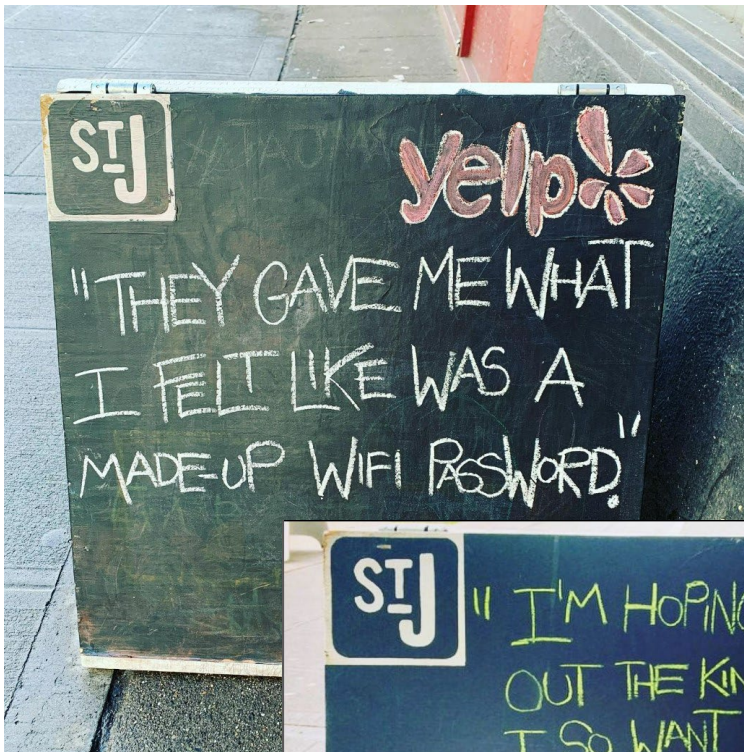 STJ
yelp
"THEY GAVE ME WHAT
I FELT LIKE WAS A
MADE-UP WIFI PASSWORD."
STJ
"I'M HOPING
OUT THE
I SO WANT